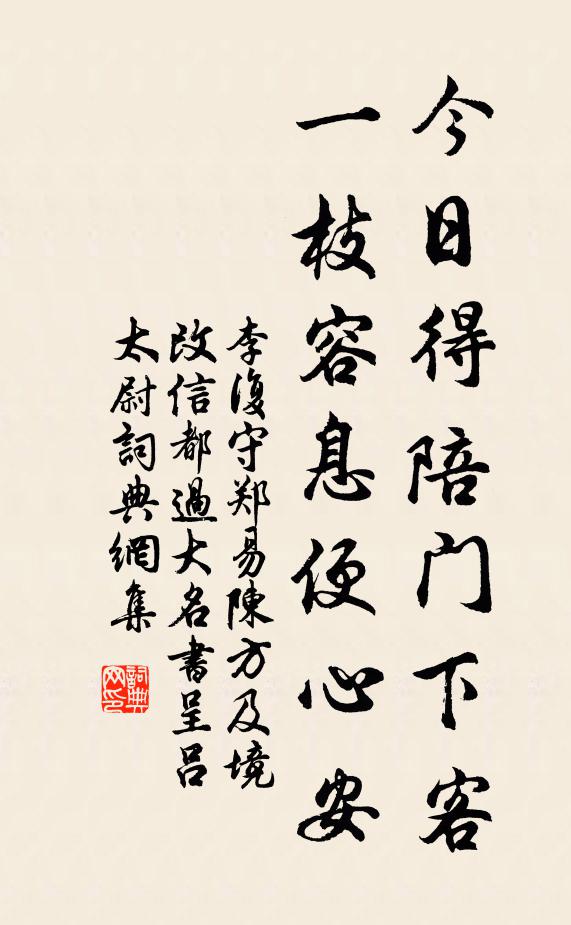 今日得陪門下客
一枝容息便心安
李復守郑易陳方及境
改信都過大名書呈吕
太尉詞典網集
詞典网印